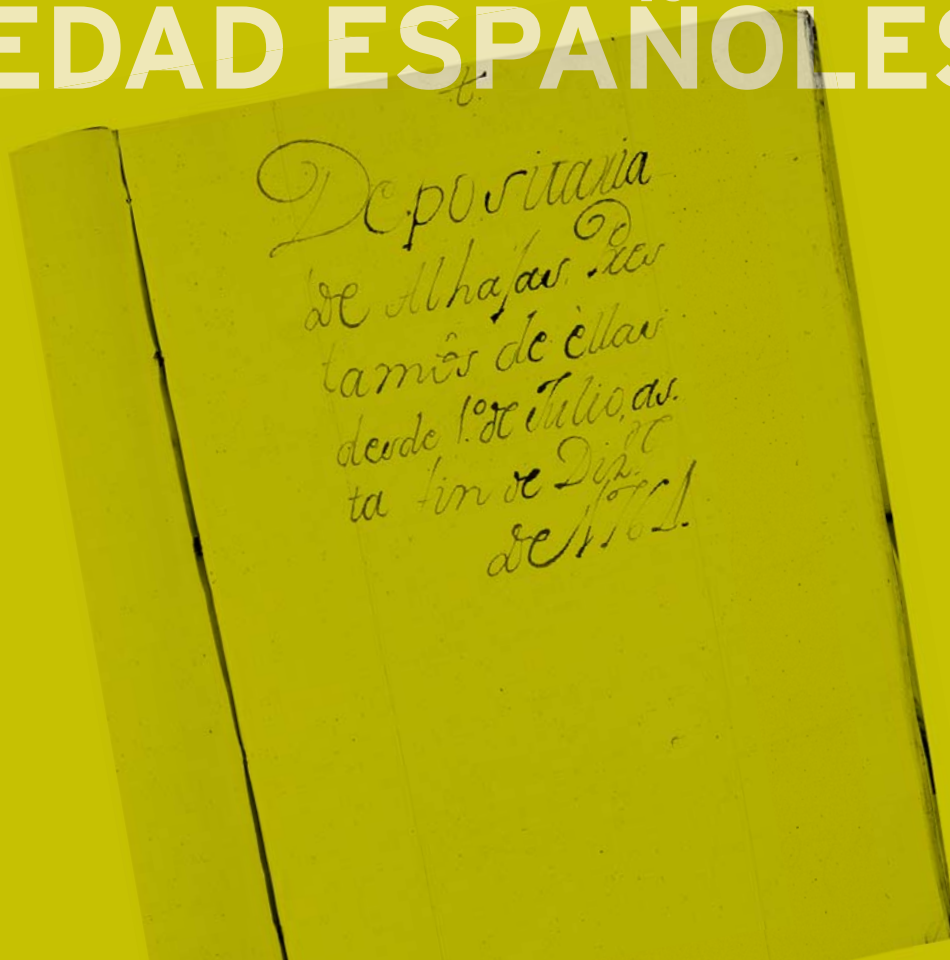 EDAD ESPAÑOLES
t.
Depositaria
de Alhajas. Pres
tamôs de èllas
desde 1.º de Julio, as.
ta fin de Diz.re
de 1761.